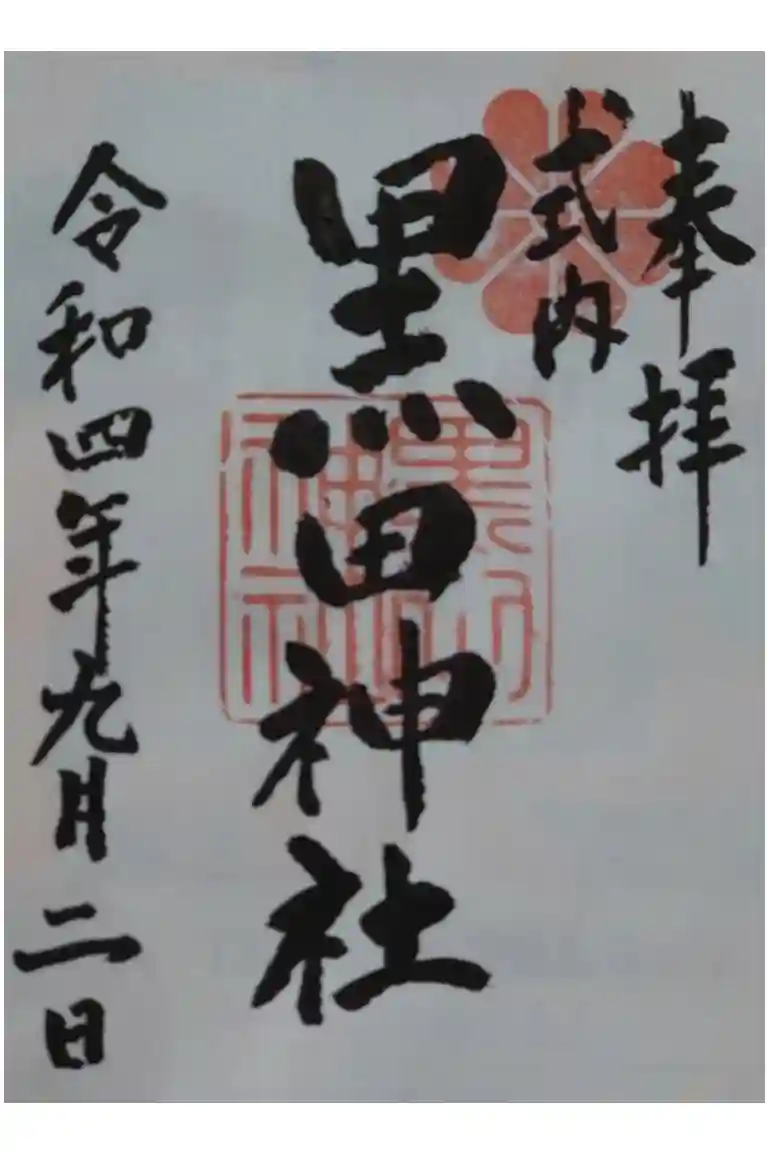 奉拝
式内
黒田神社
令和四年九月二日